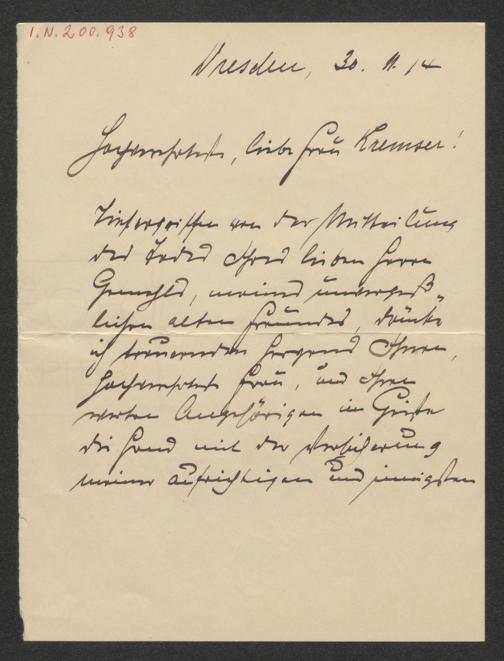 I.N. 200.938
Dresden, 30. 11. 14
Hochverehrteste, liebe Frau Kremser!
Tiefergriffen von der Mitteilung
des Todes Ihres lieben Herrn
Gemahls, meines unvergeß„
lichen alten Freundes, drücke
ich trauernden Herzens Ihnen,
hochverehrte Frau, und Ihren
werten Angehörigen im Geiste
die Hand mit der Versicherung
meiner aufrichtigen und innigsten